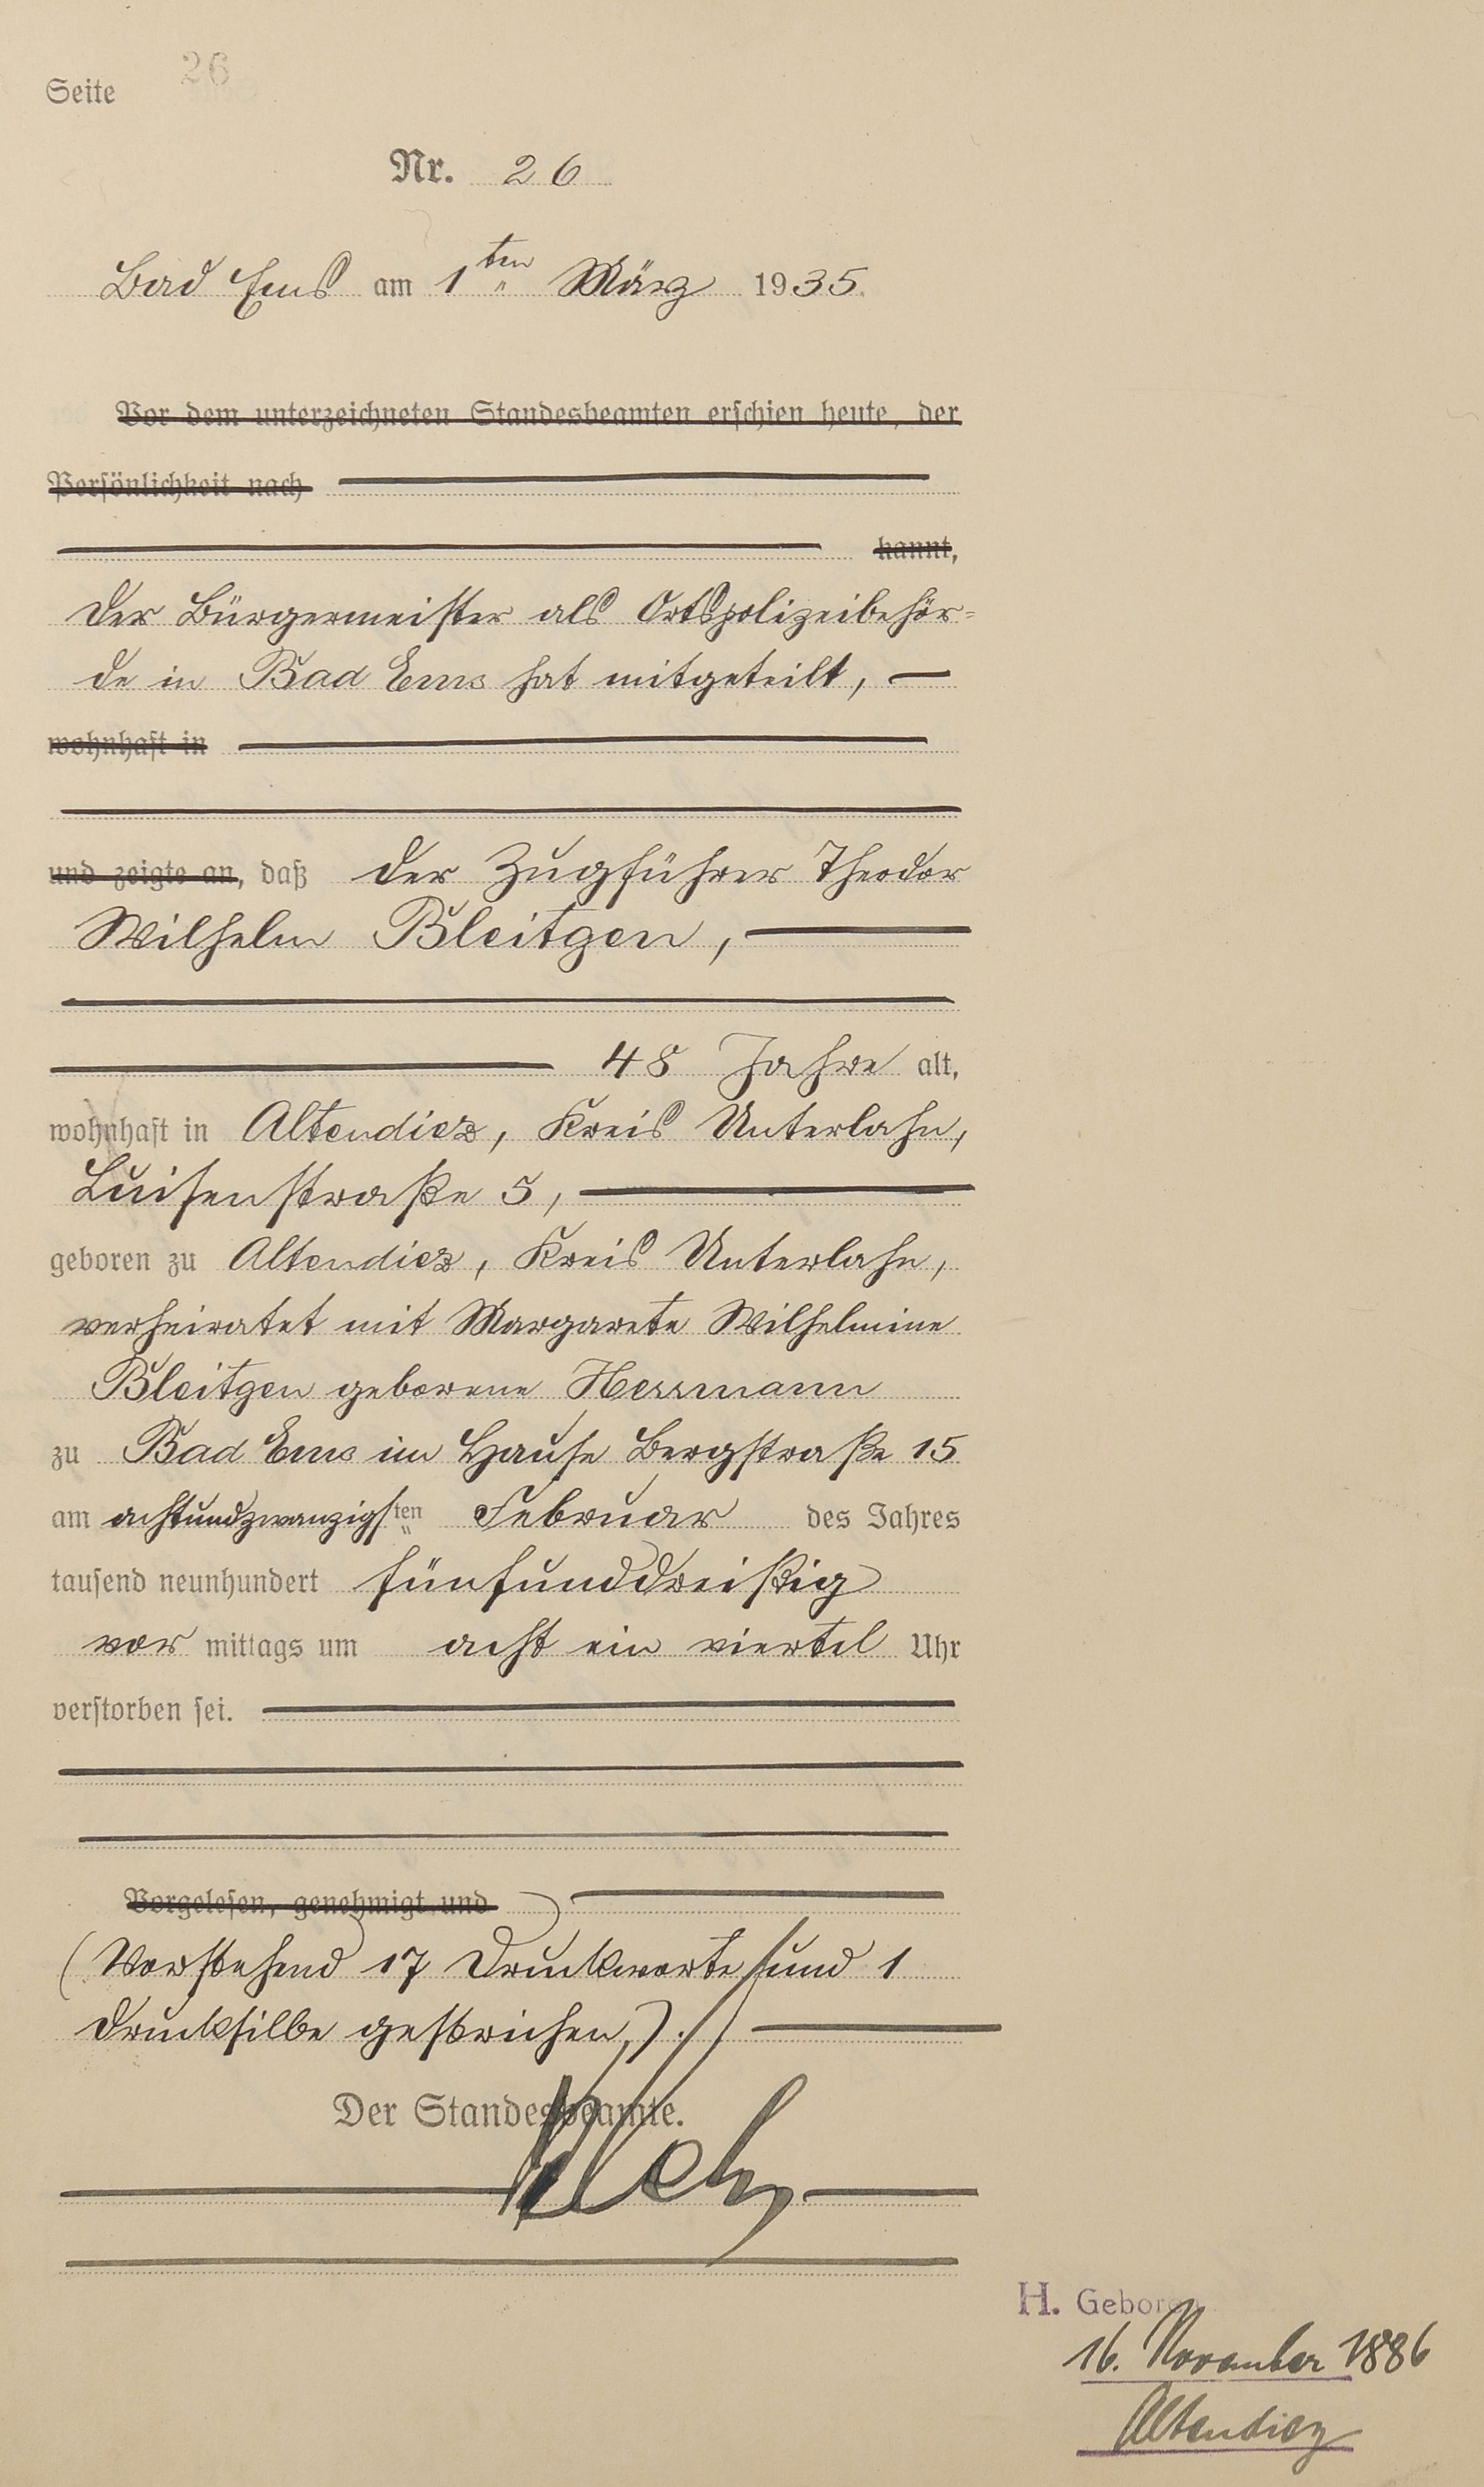 Seite 26
Nr. 26
Bad Ems am 1ten März 1935.
Vor dem unterzeichneten Standesbeamten erschien heute, der
Persönlichkeit nach
kannt,
Der Bürgermeister als Ortspolizeibehör-
de in Bad Ems hat mitgeteilt,
wohnhaft in
und zeigte an, daß der Zugführer Theodor
Wilhelm Bleitgen,
48 Jahre alt,
wohnhaft in Altendiez, Kreis Unterlahn,
Luisenstraße 5,
geboren zu Altendiez, Kreis Unterlahn,
verheiratet mit Margarete Wilhelmine
Bleitgen geborene Herrmann
zu Bad Ems im Hause Bergstraße 15
am achtundzwanzigsten Februar des Jahres
tausend neunhundert fünfunddreißig
vor mittags um acht ein viertel Uhr
verstorben sei.
Vorgelesen, genehmigt und
(Vorstehend 17 Druckworte und 1
Drucksilbe gestrichen.)
Der Standesbeamte.
H. Geboren
16. November 1886
Altendiez